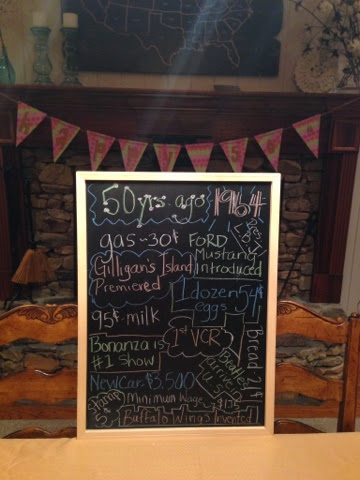 50 yrs. ago 1964
gas - 30¢
FORD
Mustang
Introduced
Gilligan's Island
Premiered
1 dozen 54¢
eggs
95¢ milk
1st VCR
Bonanza is
#1 Show
Bread 21¢
Beatles
arrive in
U.S.
New Car $3,500
Stamp
5¢
Minimum Wage $1.15
Buffalo Wings Invented